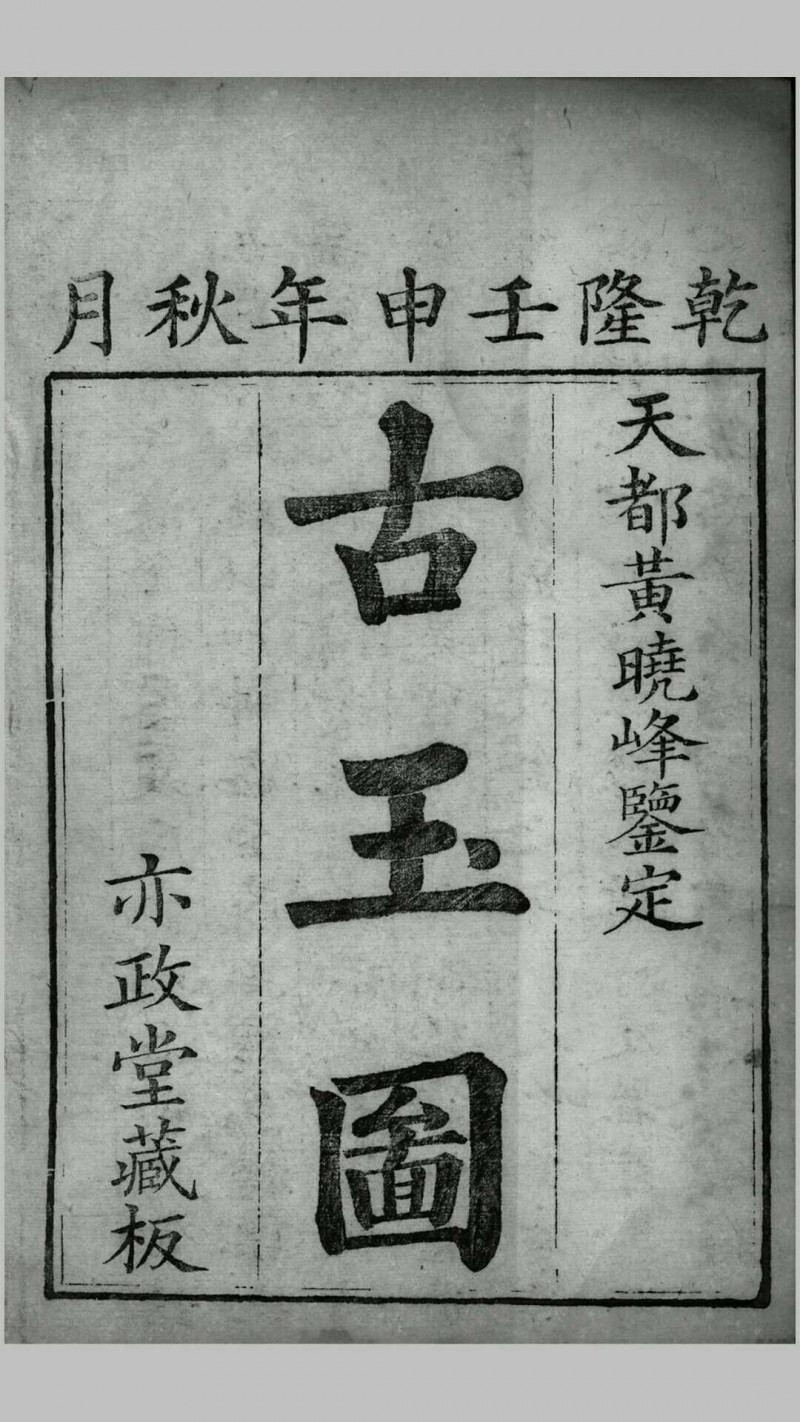 乾隆壬申年秋月
天都黃曉峰鑒定
古玉圖
亦政堂藏板